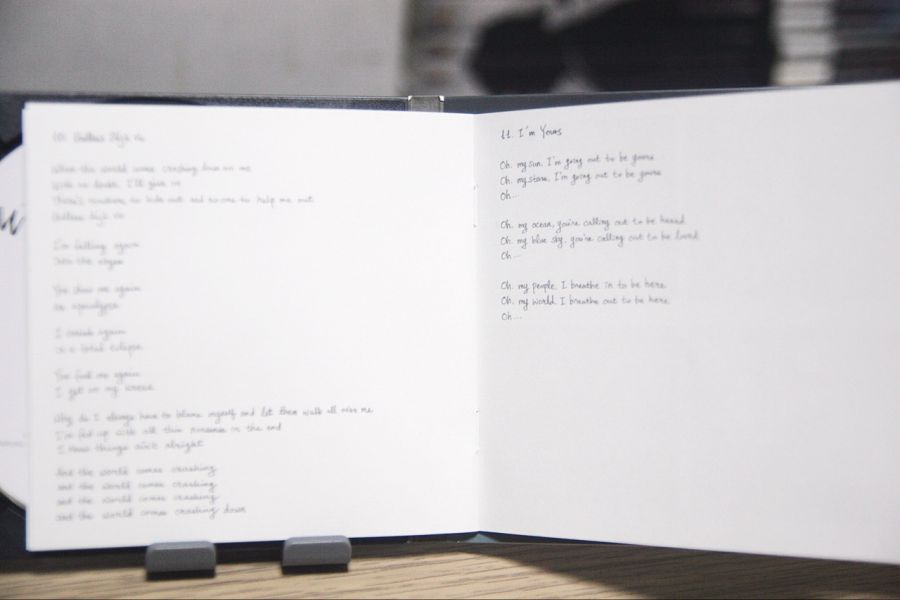 10. Endless Déjà Vu
When the world comes crashing down on me
With no doubt, I'll give in
There's nowhere to hide out and no one to help me out
Endless déjà vu
I'm falling again
Into the abyss
You show me again
an apocalypse
I again
in a total eclipse
You fool me again
I get on my knees
Why do I always have to blame myself and let them walk all over me
I'm fed up with all this nonsense in the end
I know things ain't alright
And the world comes crashing
and the world comes crashing
and the world comes crashing
and the world comes crashing down
11. I'm Yours
Oh, my sun, I'm going out to be yours
Oh, my stars, I'm going out to be yours
Oh...
Oh, my ocean, you're calling out to be heard
Oh, my blue sky, you're calling out to be loved
Oh...
Oh, my people, I breathe in to be here
Oh, my world, I breathe out to be here
Oh...